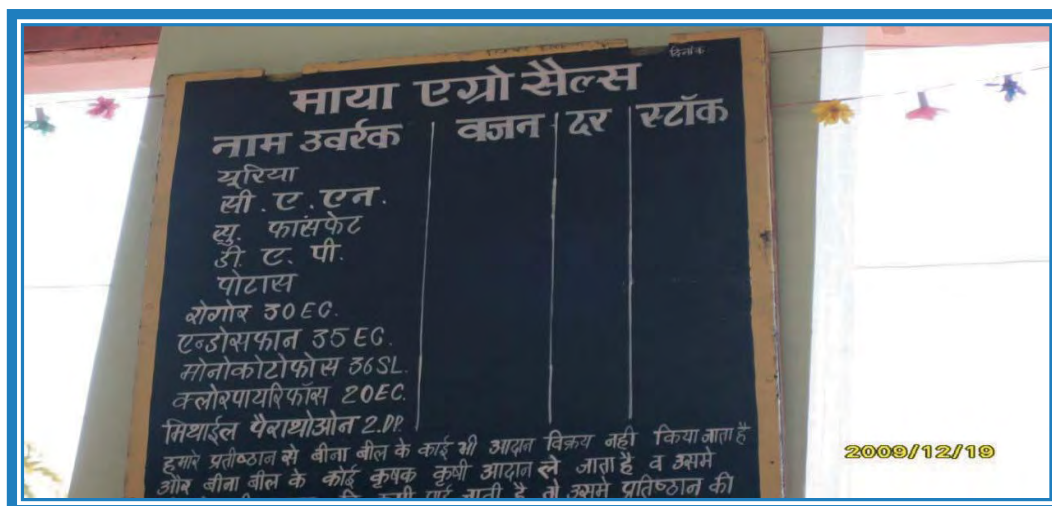 दिनांक
माया एग्रो सैल्स
नाम उवर्रक वजन दर स्टॉक
यूरिया
सी. ए. एन.
सु. फासफेट
डी. ए. पी.
पोटास
रोगोर 30 EC.
एन्डोसफान 35 EC.
मोनोकोटोफोस 36 SL.
क्लोरपायरिफॉस 20 EC.
मिथाईल पैराथीओन 2.DP.
हमारे प्रतीष्ठान से बीना बील के काई भी आदान विक्रय नही किया जाता है
और बीना बील के कोई कृषक कृषी आदान ले जाता है व उसमे
जाती है तो उसमे प्रतिष्ठान की
2009/12/19